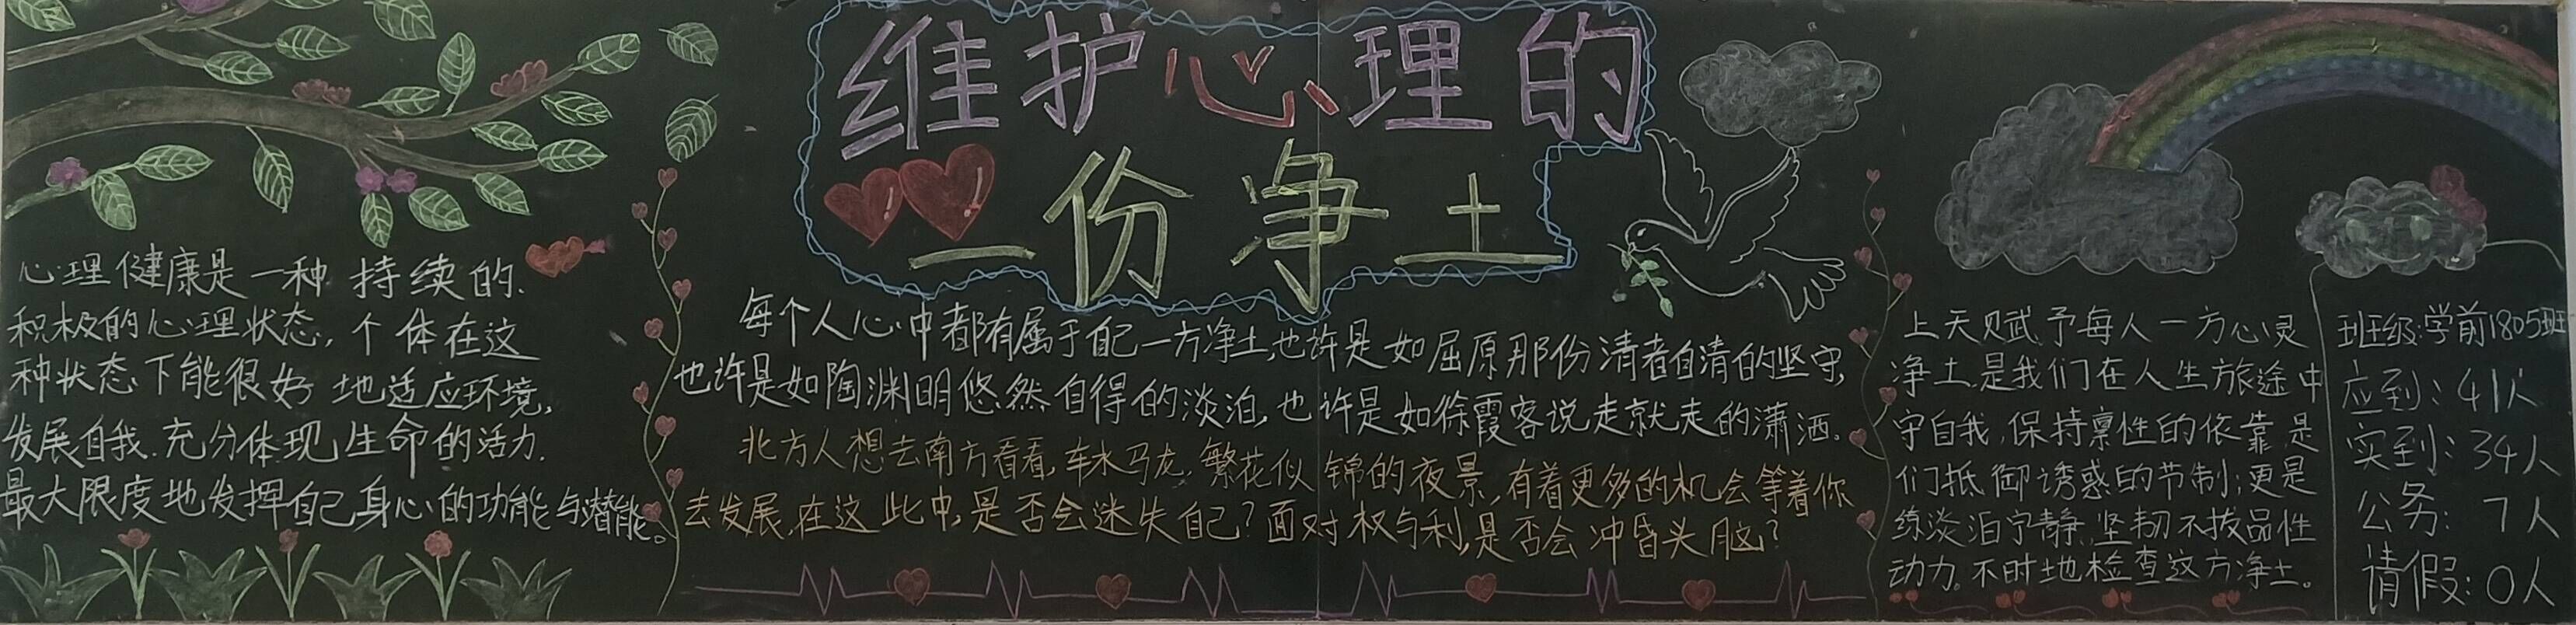 维护心理的
一份净土
心理健康是一种持续的.
积极的心理状态,个体在这
种状态下能很好地适应环境,
发展自我.充分体现生命的活力.
最大限度地发挥自己身心的功能与潜能。
每个人心中都有属于自己一方净土,也许是如屈原那份清者自清的坚守,
也许是如陶渊明悠然自得的淡泊,也许是如徐霞客说走就走的潇洒.
北方人想去南方看看,车水马龙,繁花似锦的夜景,有着更多的机会等着你
去发展,在这此中,是否会迷失自己?面对权与利,是否会冲昏头脑?
上天赋予每人一方心灵
净土.是我们在人生旅途中
守自我,保持禀性的依靠,是
们抵御诱惑的节制;更是
练淡泊宁静,坚韧不拔品性
动力。不时地检查这方净土。
班级:学前1805班
应到:41人
实到:34人
公务:7人
请假:0人